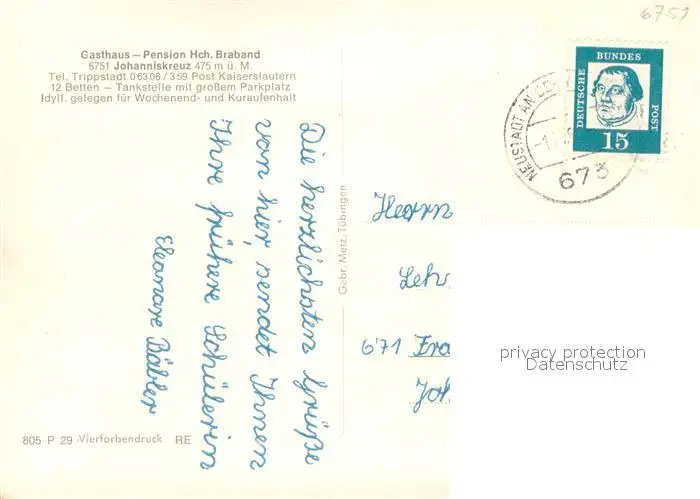 6751
Gasthaus – Pension Hch. Braband
6751 Johanniskreuz 475 m ü. M.
Tel. Trippstadt 06306/359 Post Kaiserslautern
12 Betten – Tankstelle mit großem Parkplatz
Idyll. gelegen für Wochenend- und Kuraufenthalt
DEUTSCHE
BUNDES
POST
15
NEUSTADT AN DER
673
Die herzlichsten Grüße
von hier, sendet Ihnen
Ihre frühere Schülerin
Eleonore Bäbler
Gebr. Metz, Tübingen
Herrn
Leh
671
Joh
privacy protection
Datenschutz
805 P 29 Vierfarbendruck RE